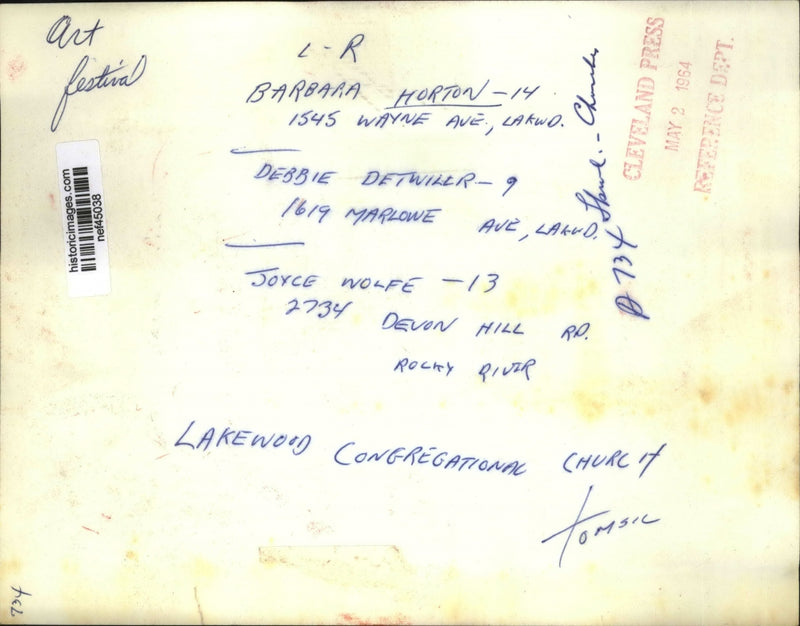 Art
festival
L-R
BARBARA HORTON-14
1545 WAYNE AVE., LAKWD.
DEBBIE DETWILLR-9
1619 MARLOWE AVE, LAKWD.
JOYCE WOLFE -13
2734 DEVON HILL RD.
ROCKY RIVER
LAKEWOOD CONGREGATIONAL CHURCH
TOMSIC
historicimages.com
nef45038
CLEVELAND PRESS
MAY 2 1964
REFERENCE DEPT.
734
734